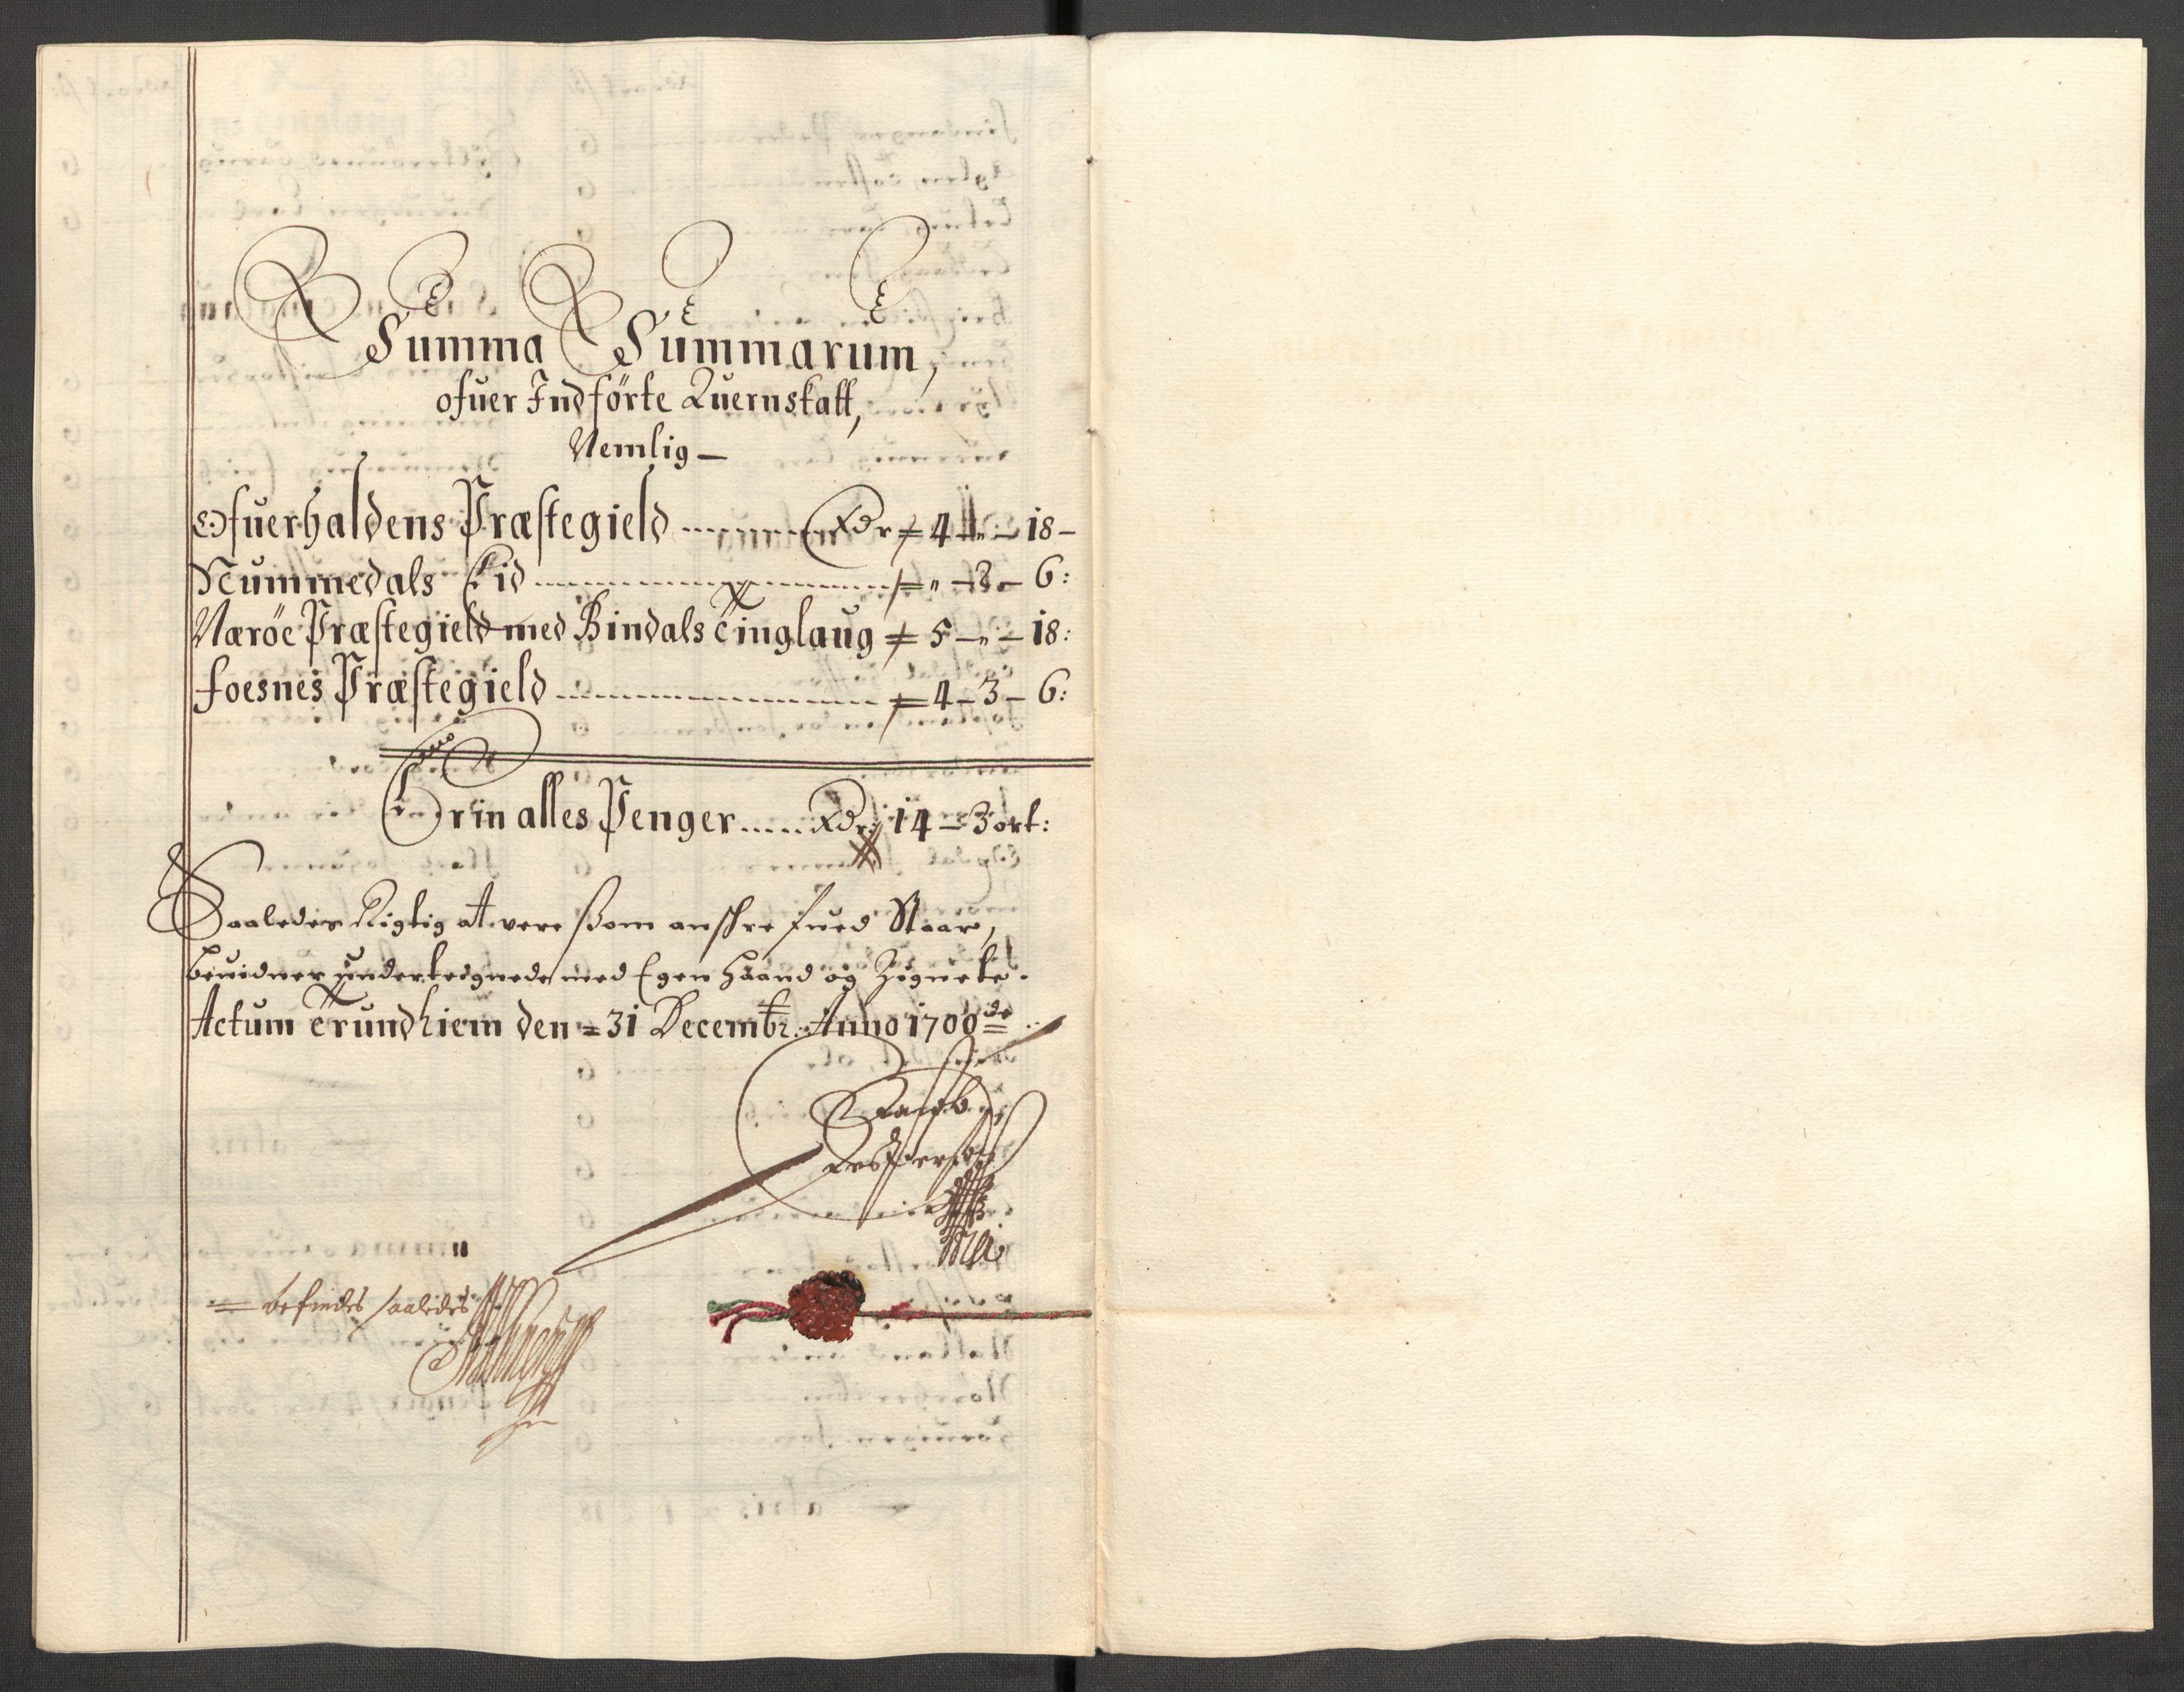 Summa Summarum,
ofuer Indförte Quernskatt,
Nemlig —
Ofuerhaldens Præstegield ------- Rdr = 4 - „ - 18 -
Nummedals Eid ------- = „ - 3 - 6:
Næröe Præstegield med Bindals Tinglaug = 5 - „ - 18:
Foesnes Præstegield ------- = 4 - 3 - 6:
Er in alles Penger ..... Rdr: 14 - 3 ort:
Saaledes Rigtig at vere ßom anschrefued Staar,
beuidner undertegnede med Egen Haand og Zignete.
Actum Trundhiem den = 31 Decembr: Anno 1700de
= befindes saaledes